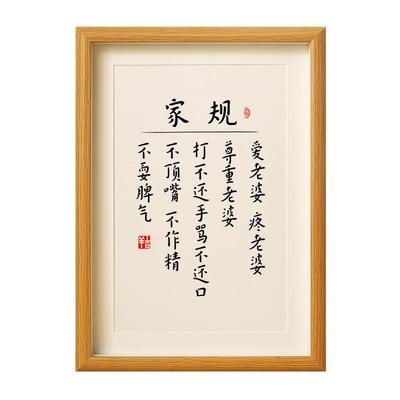 家规
爱老婆 疼老婆
尊重老婆
打不还手骂不还口
不顶嘴 不作精
不耍脾气